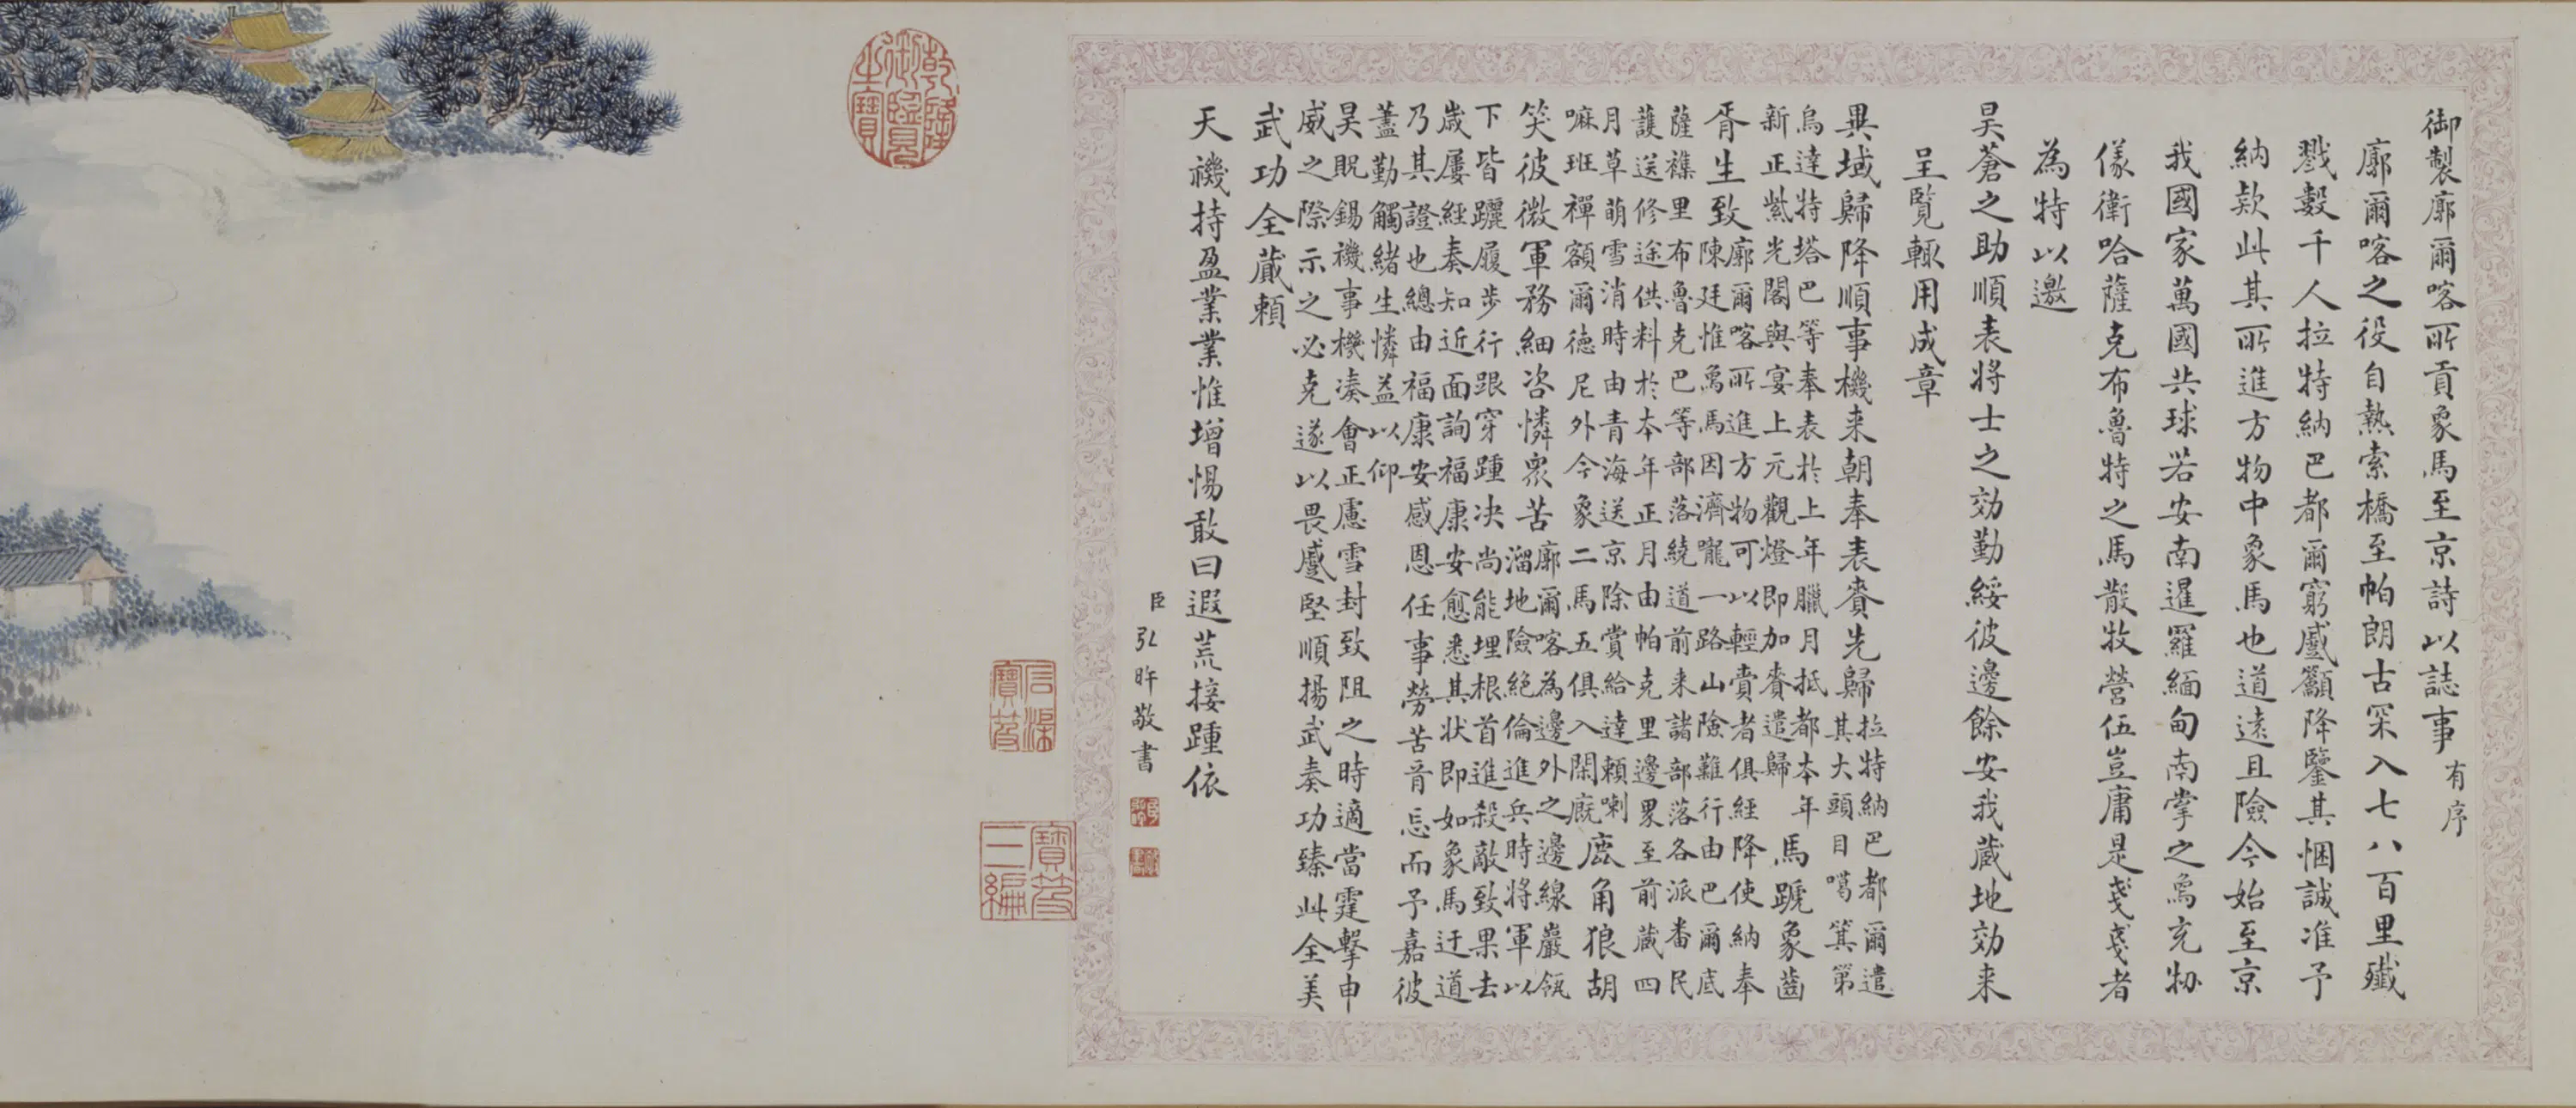 御製廓爾喀所貢象馬至京詩以誌事 有序
廓爾喀之役自熱索橋至帕朗古深入七八百里殲
戮數千人拉特納巴都爾窮蹙籲降鑒其悃誠准予
納款此其所進方物中象馬也道遠且險今始至京
我國家萬國共球若安南暹羅緬甸南掌之象充牣
儀衛哈薩克布魯特之馬散牧營伍豈庸是戔戔者
為特以邀
昊蒼之助順表將士之効勤綏彼邊餘安我藏地効来
呈覽輒用成章
異域歸降順事機来朝奉表賚先歸
拉特納巴都爾遣
其大頭目噶箕第
烏達特塔巴等奉表於上年臘月抵都本年
新正紫光閣與宴上元觀燈即加賚遣歸
馬蹏象齒
胥生致
廓爾喀所進方物可以輕賫者俱經降使納奉
陳廷惟象馬因濟嚨一路山險難行由巴爾底
薩襍里布魯克巴等部落繞道前来諸部落各派番民
護送修途供料於本年正月由帕克里邊界至前藏四
月草萌雪消時由青海送京除賞給達頼喇
嘛班禪額爾德尼外今象二馬五俱入閑廐
鹿角狼胡
笑彼微軍務細咨憐衆苦
廓爾喀為邊外之邊線巖瓴
溜地險絶倫進兵時將軍以
下皆躧履步行跟穿踵决尚能埋根首進殺敵致果去
歲屢經奏知近面詢福康安愈悉其状即如象馬迂道
乃其證也總由福康安感恩任事勞苦胥忘而予嘉彼
藎勤觸緒生憐益以仰
昊貺錫禨事機湊會正慮雪封致阻之時適當霆撃申
威之際示之必克遂以畏蹙堅順揚武奏功臻此全美
武功全蕆頼
天禨持盈業業惟增惕敢曰遐荒接踵依
臣弘旿敬書
乾隆御覽之寶
石渠寶笈
寶笈三編